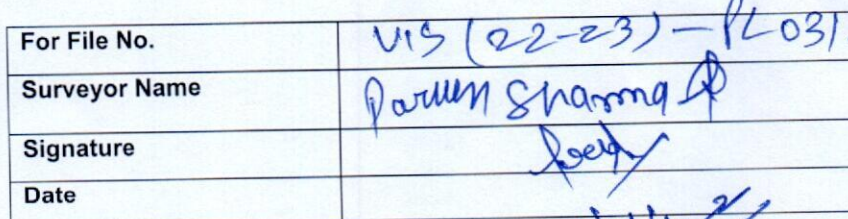 For File No. VIS (22-23) - PL031
Surveyor Name Parveen Sharma
Signature
Date